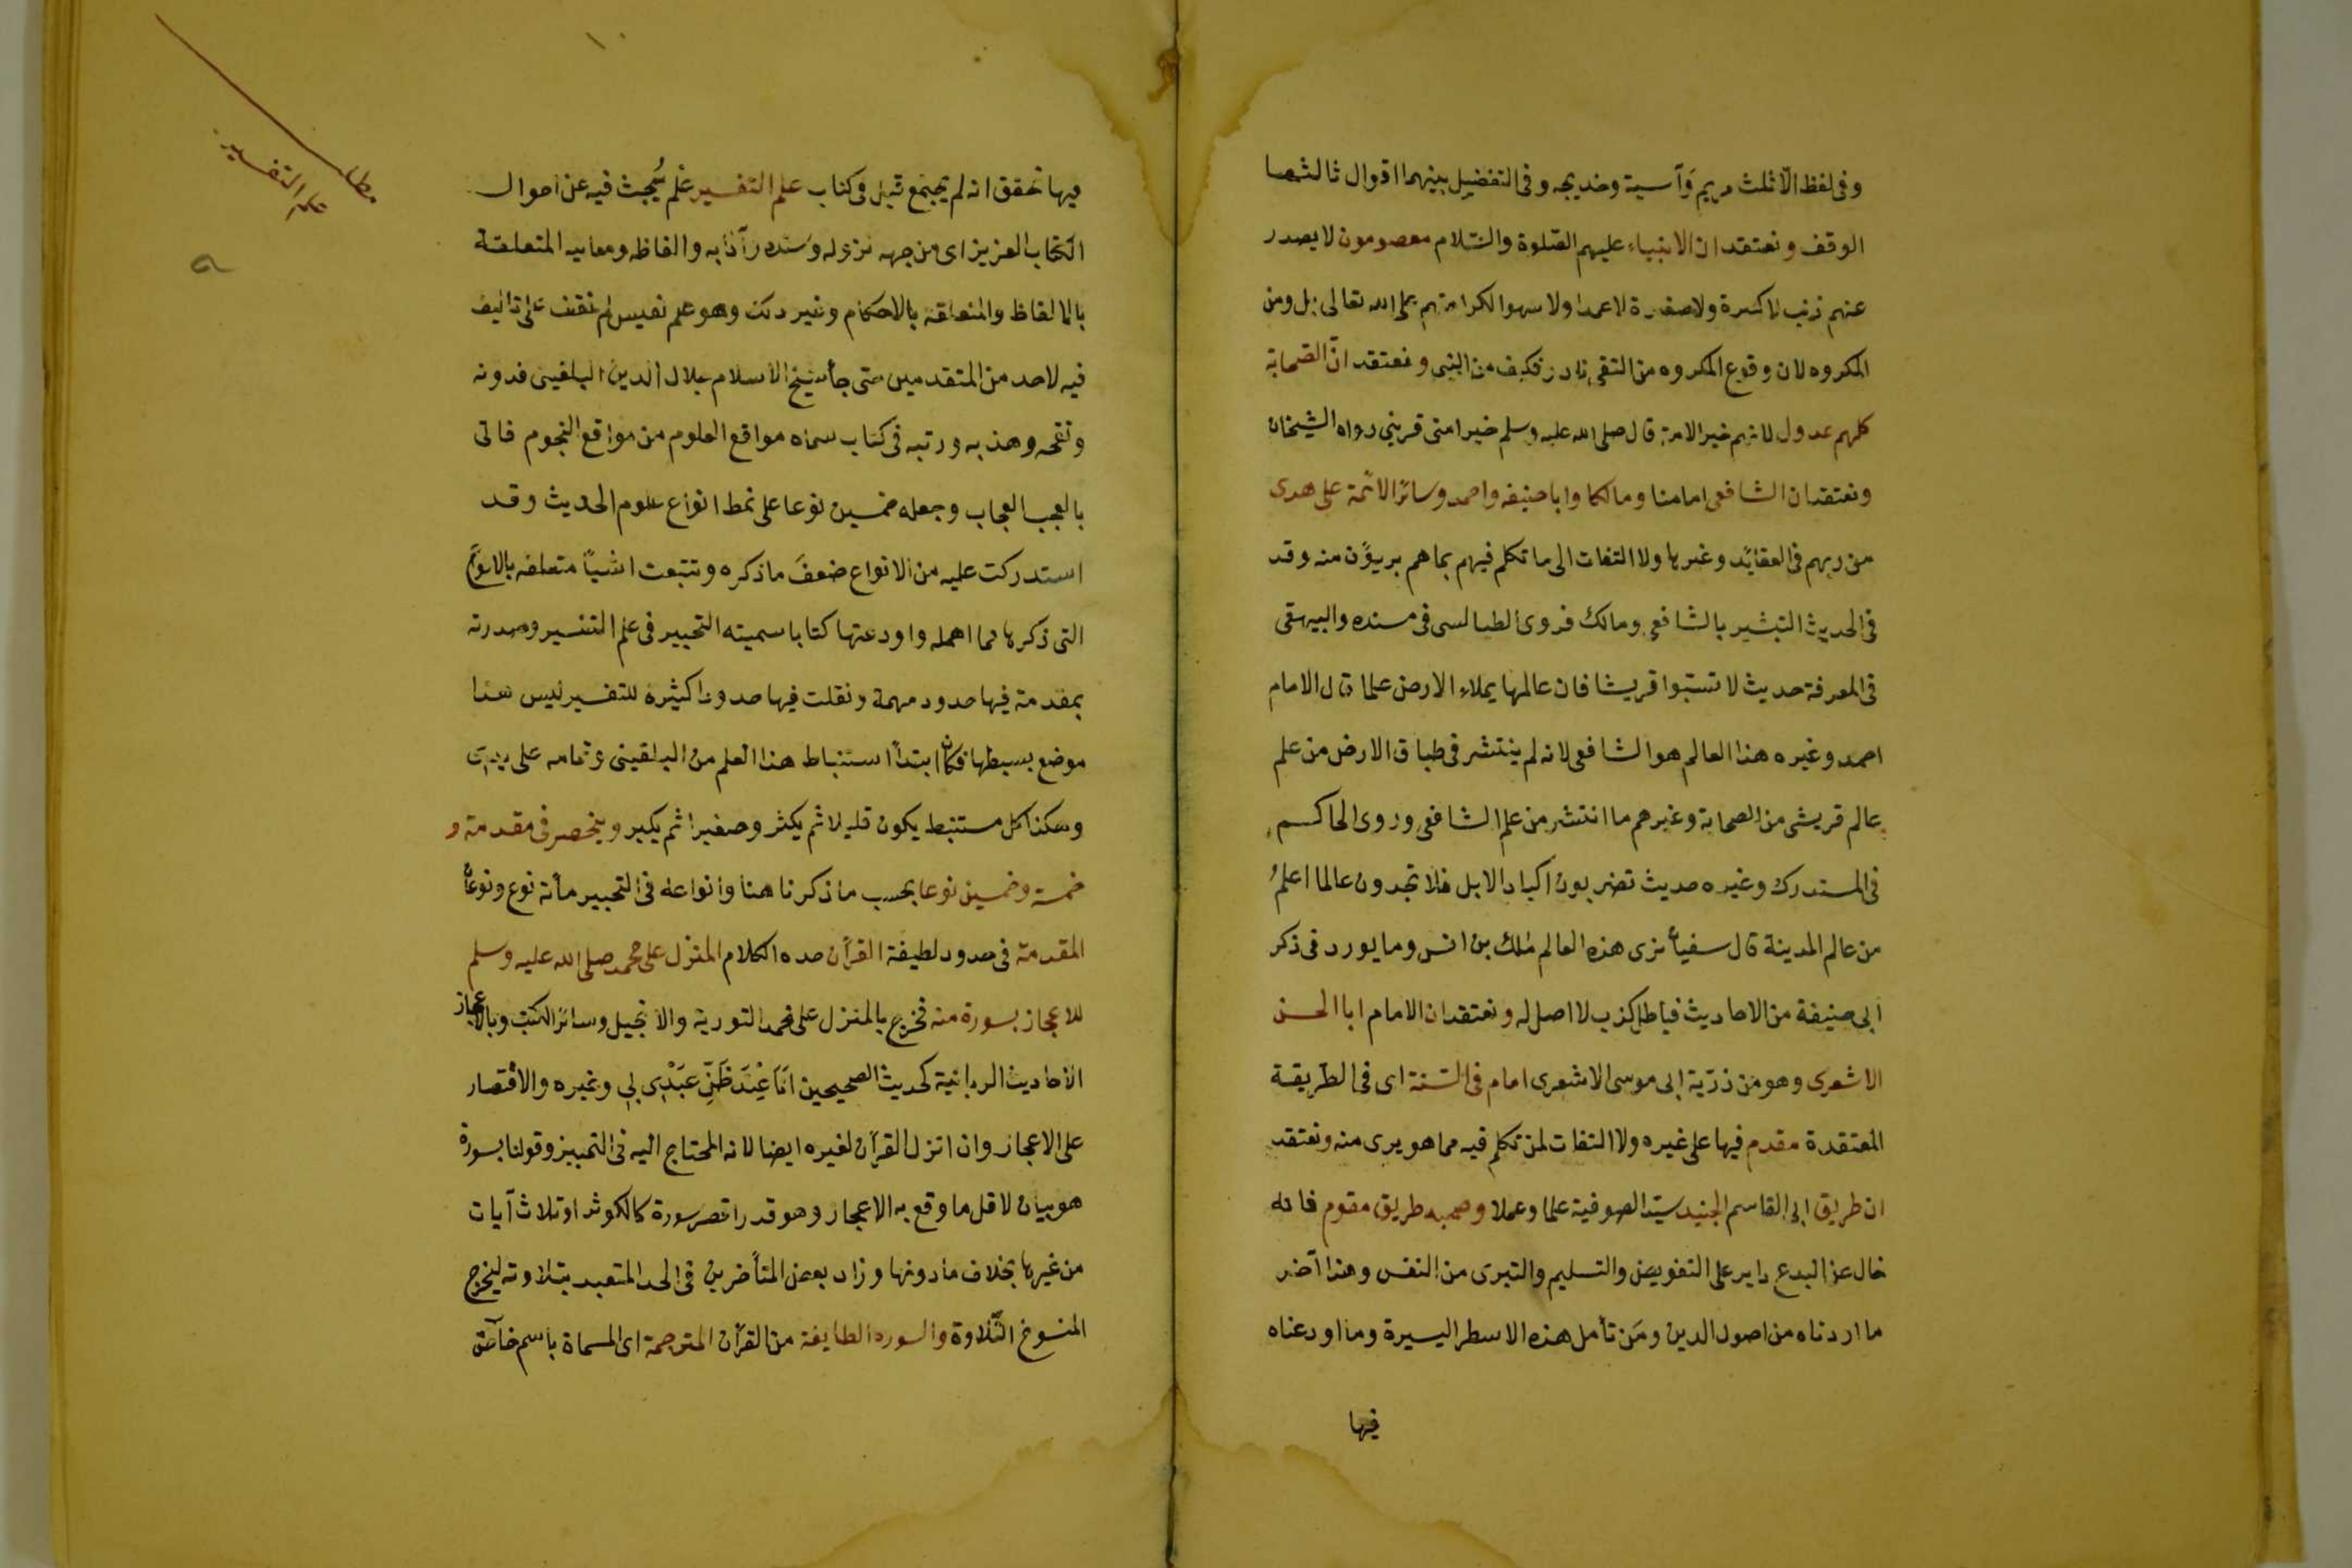 وفى لفظ الا ثلث مريم وَآسية وخديجه وفى التفضيل بينهما اقوال ثالثها
الوقف ونعتقد ان الانبياء عليهم الصّلوة والسّلام معصومون لا يصدر
عنهم ذنب لا كبيرة ولا صغيرة لا عمدا ولا سهوا لكرامتهم على الله تعالى بل ومن
المكروه لان وقوع المكروه من التقى نادر فكيف من النبى ونعتقد انّ الصّحابة
كلهم عدول لانهم خير الامة قال صلى الله عليه وسلم خير امتى قرنى رواه الشيخان
ونعتقد ان الشافعى امامنا ومالكا وابا حنيفه واحمد وسائر الائمة على هدى
من ربهم فى العقائد وغيرها ولا التفات الى ما تكلم فيهم بما هم بريؤن منه وقد
فى الحديث التبشير بالشافعى ومالك فروى الطيالسى فى مسنده والبيهقى
فى المعرفة حديث لا تسبّوا قريشا فان عالمها يملاء الارض علما قال الامام
احمد وغيره هذا العالم هو الشافعى لانه لم ينتشر فى طباق الارض من علم
عالم قريشى من الصحابة وغيرهم ما انتشر من علم الشافعى وروى الحاكم
فى المستدرك وغيره حديث تضربون اكباد الابل فلا تجدون عالما اعلمُ
من عالم المدينة قال سفيان نرى هذه العالم ملك بن انس وما يورد فى ذكر
ابى حنيفة من الاحاديث فباطل كذب لا اصل له ونعتقد ان الامام ابا الحسن
الاشعرى وهو من ذرّية ابى موسى الاشعرى امام فى السّنة اى فى الطريقة
المعتقدة مقدم فيها على غيره ولا التفات لمن تكلم فيه مما هو برى منه ونعتقد
ان طريق ابى القاسم الجنيد سيّد الصوفية علما وعملا وصحبه طريق مقوم فانه
خال عن البدع داير على التفويض والتسليم والتبرى من النفس وهذا آخر
ما اردناه من اصول الدين ومَن تأمل هذه الاسطر اليسيرة وما اودعناه
فيها
١٠
مطلب
علم التفسير
فيها تحقق انه لم يجتمع قبل فى كتاب علم التفسير علم يُبحث فيه عن احوال
الكتاب العزيز اى من جهه نزوله وسنده وآدابه والفاظه ومعانيه المتعلقة
بالالفاظ والمتعلقه بالاحكام وغير ذلك وهو علم نفيس لم نقف على تاليف
فيه لاحد من المتقدمين حتى جأ شيخ الاسلام جلال الدين البلقينى فدونه
ونقحه وهذبه ورتبه فى كتاب سماه مواقع العلوم من مواقع النجوم فاتى
بالعجب العجاب وجعله خمسين نوعا على نمط انواع علوم الحديث وقد
استدركت عليه من الانواع ضعفَ ما ذكره وتتبعت اشيأ متعلقه بالانواع
التى ذكرها مما اهمله واودعتها كتابا سميته التحبير فى علم التفسير وصدرته
بمقدمة فيها حدود مهمة ونقلت فيها حدودا كثيره للتفسير ليس هذا
موضع بسيطها فكان ابتدأ استنباط هذا العلم من البلقينى وتمامه على يدى
وهكذا كل مستنبط يكون قليلا ثم يكثر وصغيرا ثم يكبر وينحصر فى مقدمة و
خمسة وخمسين نوعا بحسب ما ذكرنا هنا وانواعه فى التحبير مأئة نوع ونوعان
المقدمة فى حدود لطيفة القرأن حده الكلام المنزل على محمد صلى الله عليه وسلم
للاعجاز بسورة منه فخرج بالمنزل على محمد التورية والانجيل وسائر الكتب وبالاعجاز
الاحاديث الربانية كحديث الصحيحين انَا عِنْدَ ظَنِّ عَبْدِى بى وغيره والاقتصار
على الاعجاز وان انزل القرأن لغيره ايضا لانه المحتاج اليه فى التمييز وقولنا بسورة
هو بيان لاقل ما وقع به الاعجاز وهو قدر اقصر سورة كالكوثر او ثلاث آيات
من غيرها بخلاف ما دونها وزاد بعض المتأخرين فى الحد المتعبد بتلاوته ليخرج
المنسوخ التّلاوة والسوره الطايفة من القرأن المترجمة اى المسماة باسم خاصّ